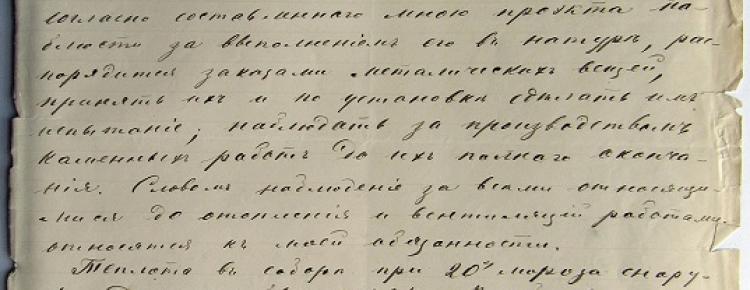 согласно составленнаго мною проэкта на-
блюсти за выполненіемъ его въ натурѣ, рас-
порядится заказами металическихъ вещей,
принять ихъ и по установкѣ сдѣлать имъ
испытаніе; наблюдать за производствомъ
каменныхъ работъ до ихъ полнаго оконча-
нія. Словомъ наблюденіе за всеми относящи-
мися до отопленія и вентиляціи работами
относятся къ моей обязанности.
Теплота въ соборѣ при 20° мороза снару-